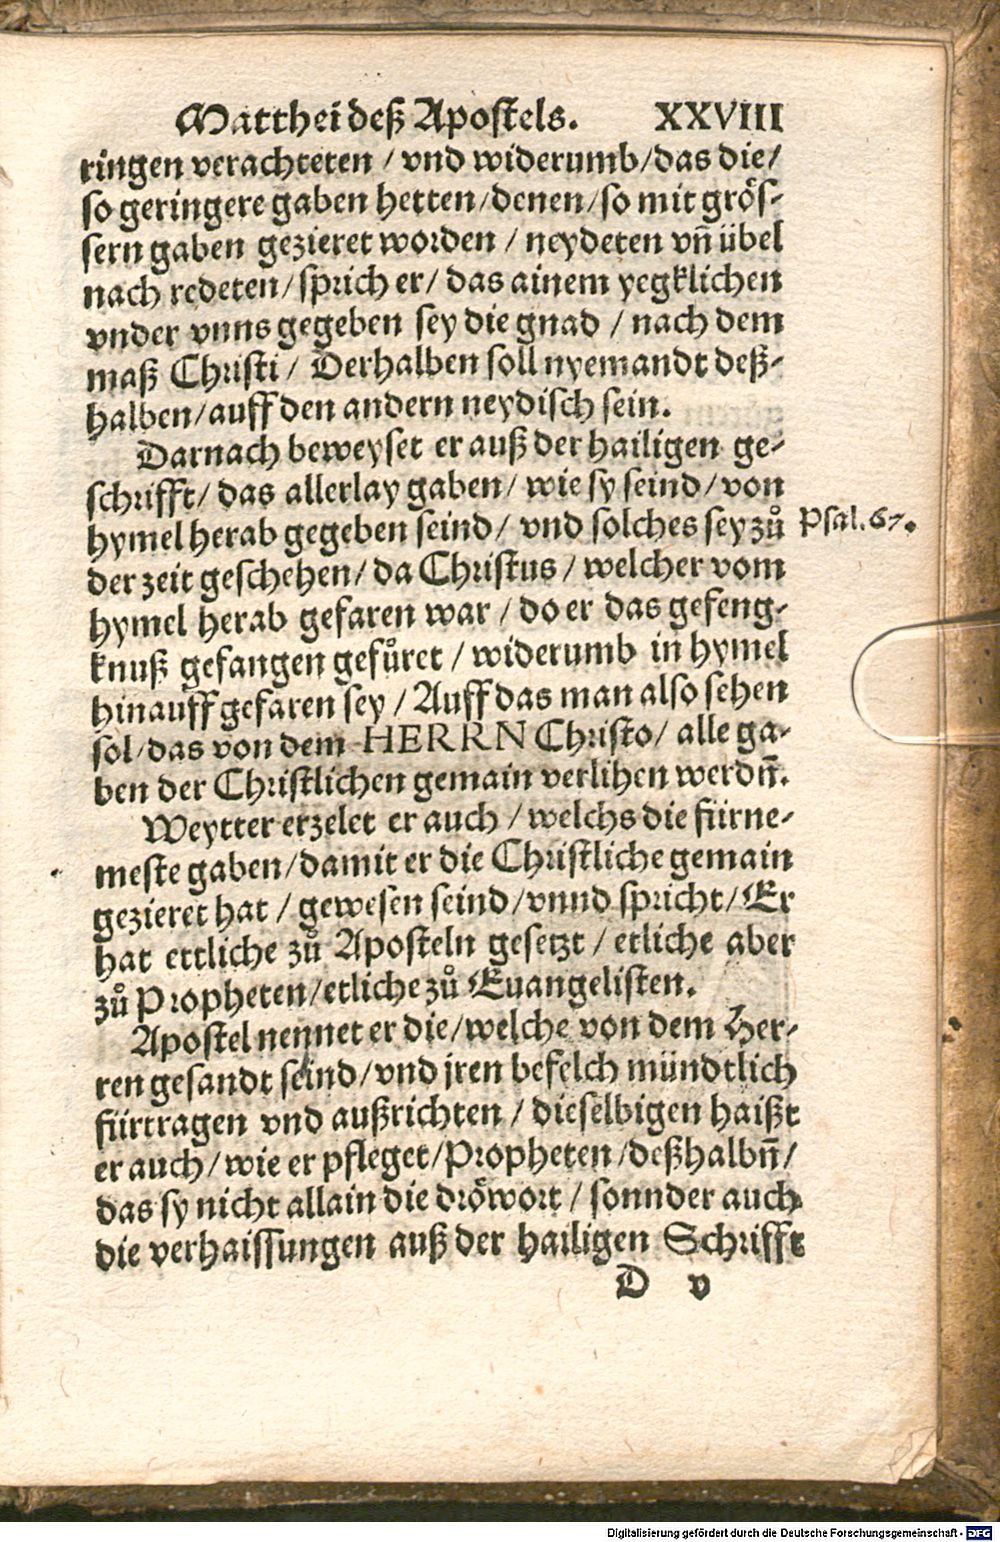 Matthei deß Apostels. XXVIII
ringen verachteten / vnd widerumb/das die/
so geringere gaben hetten/denen/so mit grös-
sern gaben gezieret worden / neydeten vñ übel
nach redeten/sprich er/ das ainem yegklichen
vnder vnns gegeben sey die gnad / nach dem
maß Christi / Derhalben soll nyemandt deß-
halben/auff den andern neydisch sein.
Darnach beweyset er auß der hailigen ge-
schrifft/ das allerlay gaben/ wie sy seind/von
hymel herab gegeben seind/ vnd solches sey zů
Psal.67.
der zeit geschehen/ da Christus / welcher vom
hymel herab gefaren war / do er das gefeng-
knuß gefangen gefůret / widerumb in hymel
hinauff gefaren sey / Auff das man also sehen
sol/das von dem HERRN Christo/ alle ga-
ben der Christlichen gemain verlihen werdñ.
Weytter erzelet er auch / welchs die fürne-
meste gaben/damit er die Christliche gemain
gezieret hat / gewesen seind/vnnd spricht/Er
hat ettliche zů Aposteln gesetzt / etliche aber
zů Propheten/etliche zů Euangelisten.
Apostel nennet er die/welche von dem Her-
ren gesandt seind/vnd jren befelch mündtlich
fürtragen vnd außrichten / dieselbigen haißt
er auch/wie er pfleget/Propheten/deßhalbñ/
das sy nicht allain die dröwort / sonnder auch
die verhaissungen auß der hailigen Schrifft
D v
Digitalisierung gefördert durch die Deutsche Forschungsgemeinschaft - DFG